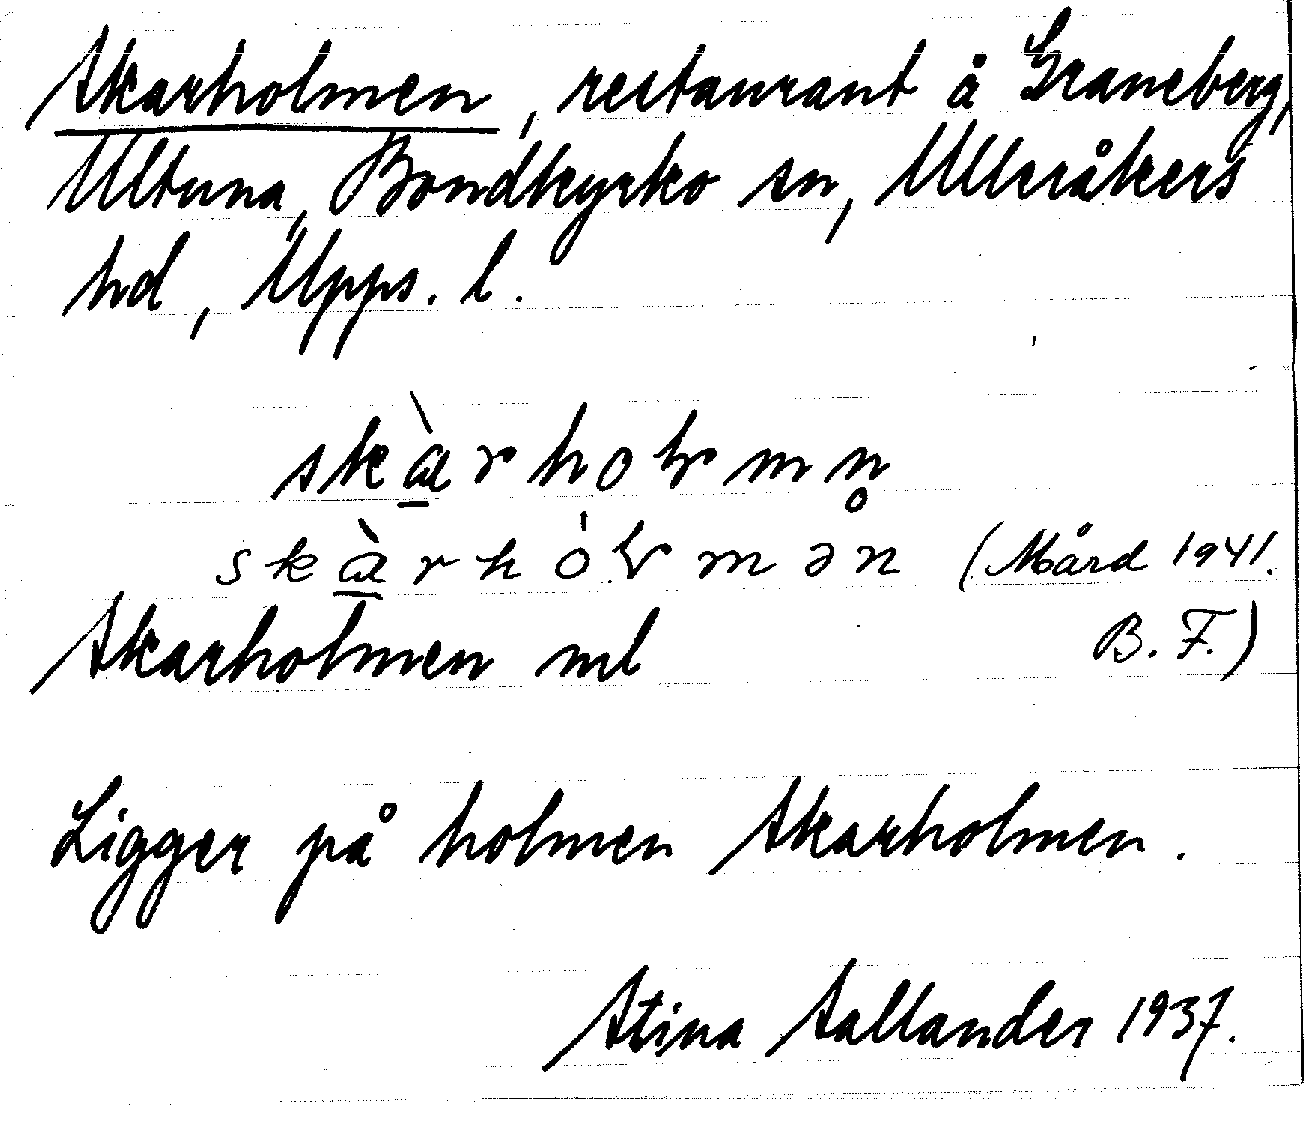 Skarholmen, restaurant å Graneberg,
Ultuna, Bondkyrko sn, Ulleråkers
hd, Upps. l.
skàrholmn̥
skàrhólmən (Mård 1941.
B. F.)
Skarholmen ml
Ligger på holmen Skarholmen.
Stina Sallander 1937.